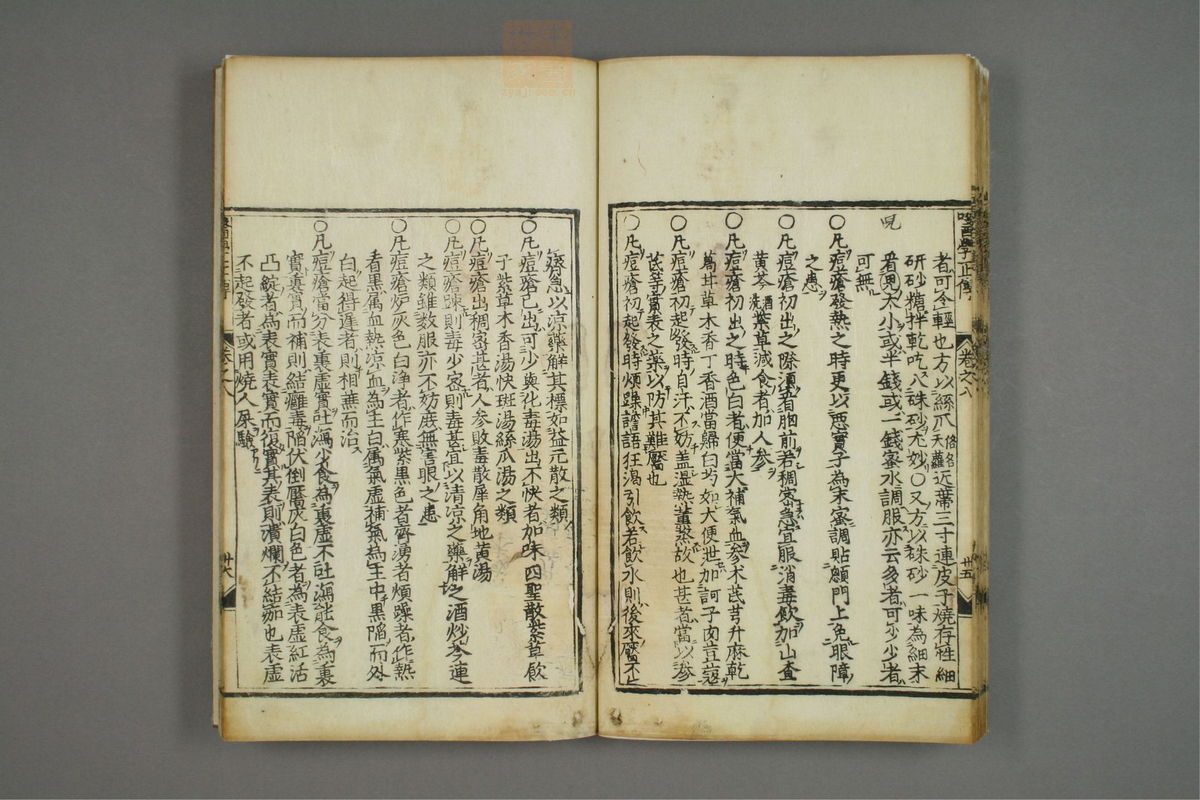 醫學正傳 卷之八 廿五
者可令輕也方以絲瓜俗名天蘿近蔕三寸連皮子燒存性細
研砂糖拌乾吃入硃砂尤妙〇又方以硃砂一味為細末
看兒大小或半錢或一錢蜜水調服亦云多者可少少者
可無
兒
〇凡痘瘡發熱之時更以惡實子為末蜜調貼顖門上免眼障
之患
〇凡痘瘡初出之際須看胸前若稠密急宜服消毒飲加山查
黃芩酒洗紫草減食者加人參
〇凡痘瘡初出之時色白者便當大補氣血參朮芪芎升麻乾
葛甘草木香丁香酒當歸白芍如大便泄加訶子肉豆蔻
〇凡痘瘡初起發時自汗不妨盖濕熱薰蒸故也甚者當以參
芪等實表之藥以防其難靨也
〇凡痘瘡初起發時煩躁譫語狂渴引飲若飲水則後來靨不
齊急以凉藥解其標如益元散之類
〇凡痘瘡已出可少與化毒湯出不快者加味四聖散紫草飲
子紫草木香湯快斑湯絲瓜湯之類
〇凡痘瘡出稠密甚者人參敗毒散犀角地黃湯
〇凡痘瘡踈則毒少密則毒甚宜以清凉之藥解之酒炒芩連
之類雖數服亦不妨庶無害眼之患
〇凡痘瘡炉灰色白淨者作寒紫黑色者齊湧者煩躁者作熱
看黑屬血熱凉血為主白屬氣虛補氣為主中黑陷而外
白起得遲者則相蕪而治
〇凡痘瘡當分表裏虛實吐瀉少食為裏虛不吐瀉能食為裏
實裏實而補則結癰毒陷伏倒靨灰白色者為表虛紅活
凸綻者為表實表實而復實其表則潰爛不結痂也表虛
不起發者或用燒人屎驗
卷之八 廿六